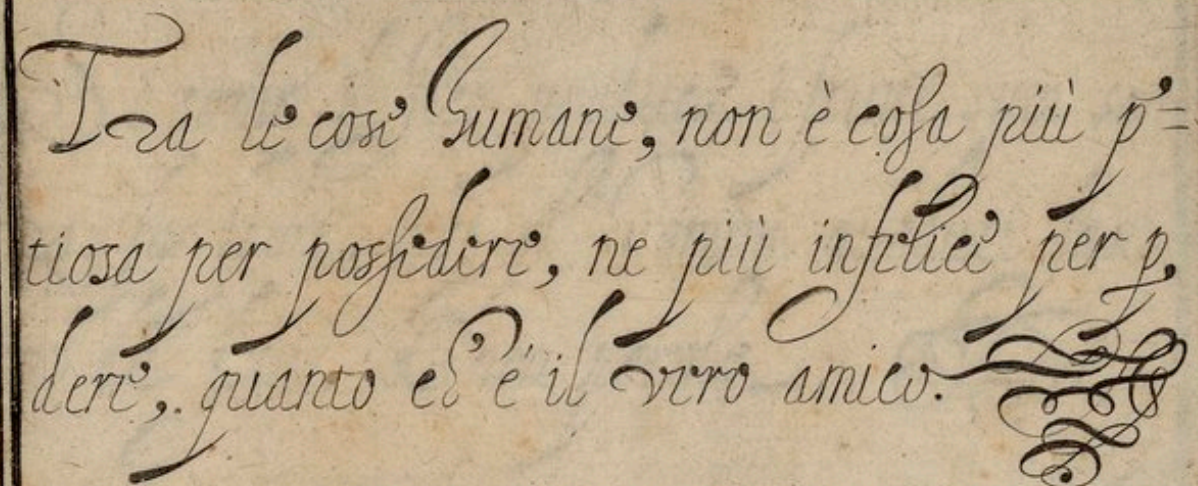 Tra le cose humane, non è cosa più p̃=
tiosa per possedere, ne più infelice per p̱,
dere, quanto ch'è il vero amico.